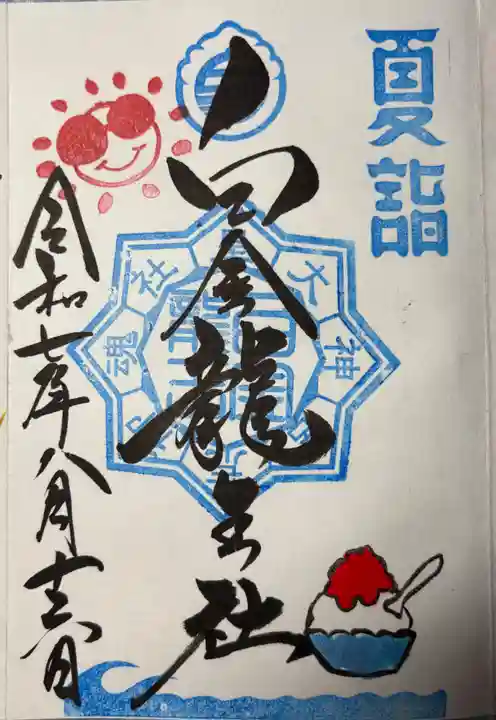 夏詣
白金龍王社
令和七年八月十六日